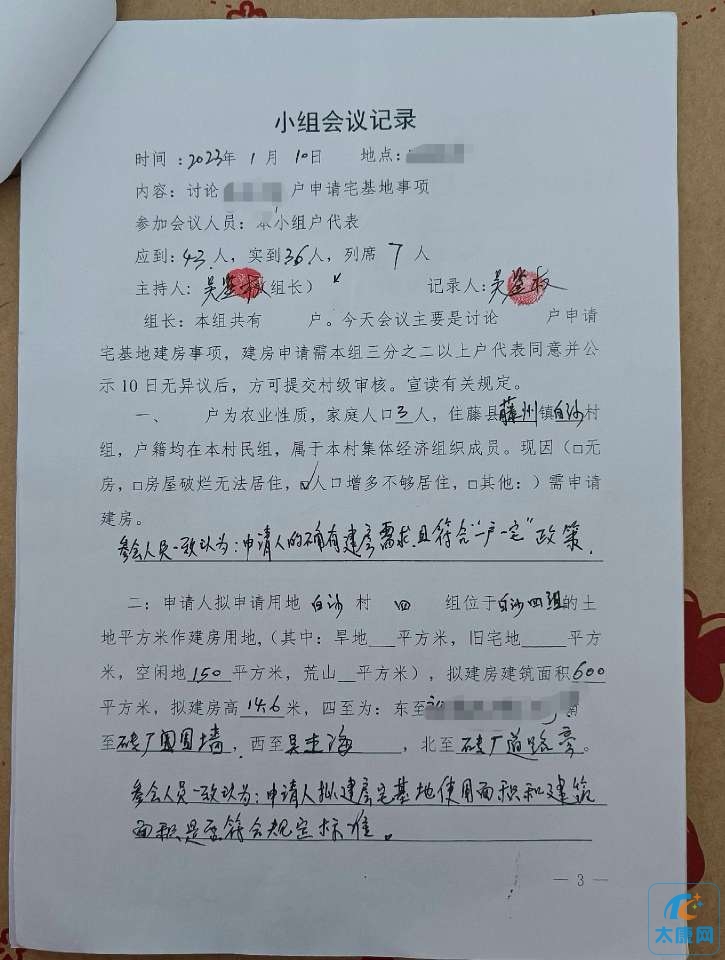 小组会议记录
时间：2023年 1 月 10日 地点：
内容：讨论 户申请宅基地事项
参加会议人员：本小组户代表
应到：43人，实到36人，列席 7 人
主持人：吴鉴权(组长） 记录人：吴鉴权
组长：本组共有 户。今天会议主要是讨论 户申请
宅基地建房事项，建房申请需本组三分之二以上户代表同意并公
示 10 日无异议后，方可提交村级审核。宣读有关规定。
一、 户为农业性质，家庭人口3人，住藤县藤州镇白沙村
组，户籍均在本村民组，属于本村集体经济组织成员。现因（□无
房，□房屋破烂无法居住，☑人口增多不够居住，□其他：）需申请
建房。
参会人员一致认为：申请人的确有建房需求，且符合“一户一宅”政策.
二：申请人拟申请用地 白沙 村 四 组位于白沙四组的土
地平方米作建房用地，（其中：旱地___平方米，旧宅地_____平方
米，空闲地150平方米，荒山__平方米），拟建房建筑面积600
平方米，拟建房高14.6米，四至为：东至 南
至砖厂围墙，西至吴 海，北至砖厂道路旁。
参会人员一致认为：申请人拟建房宅基地使用面积和建筑
面积是否符合规定标准。
— 3 —
太康网